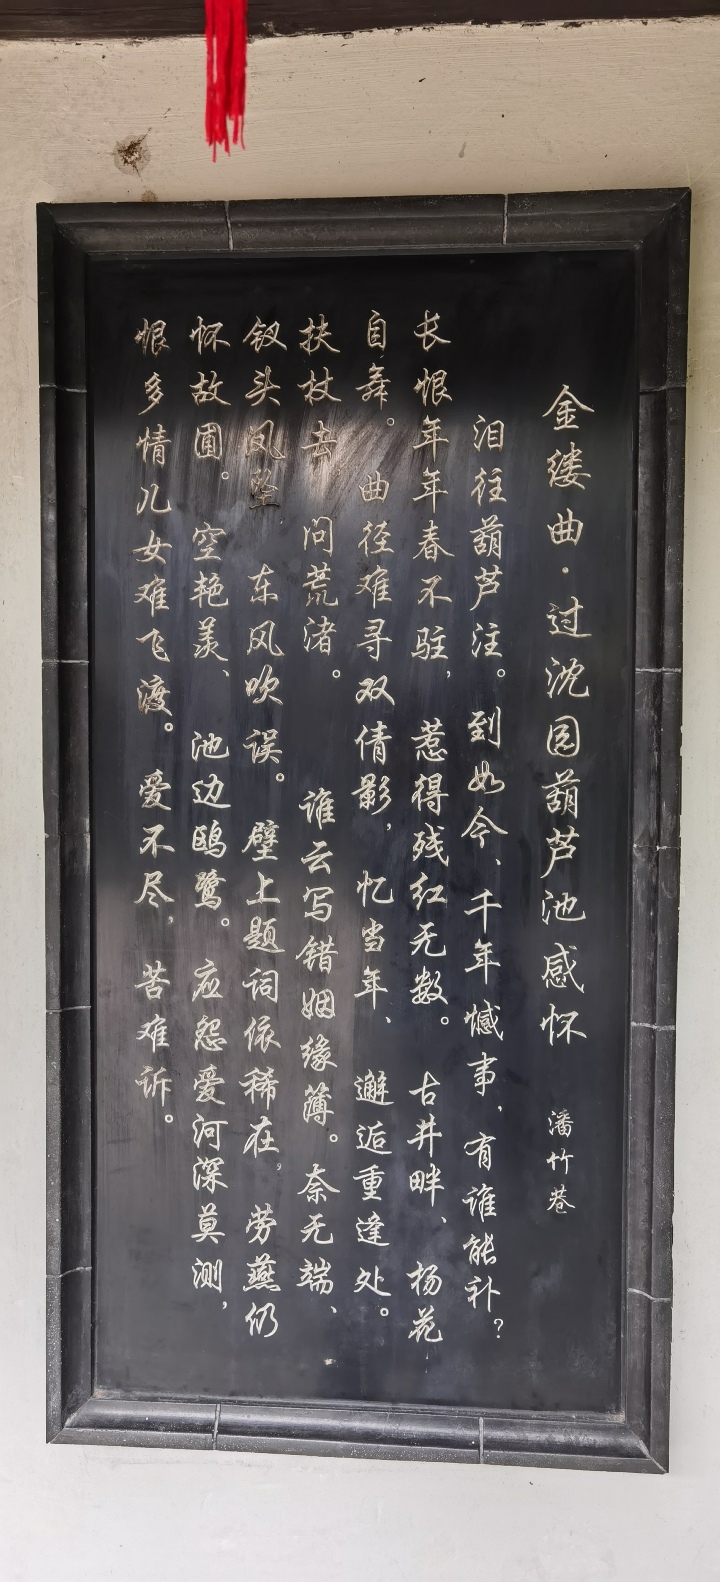 金缕曲·过沈园葫芦池感怀 潘竹巷
泪往葫芦注。到如今、千年憾事，有谁能补？
长恨年年春不驻，惹得残红无数。古井畔、杨花
自舞。曲径难寻双倩影，忆当年、邂逅重逢处。
扶杖去，问荒渚。 谁云写错姻缘薄。奈无端、
钗头凤坠，东风吹误。壁上题词依稀在，劳燕仍
怀故圃。空艳羡、池边鸥鹭。应怨爱河深莫测，
恨多情儿女难飞渡。爱不尽，苦难诉。